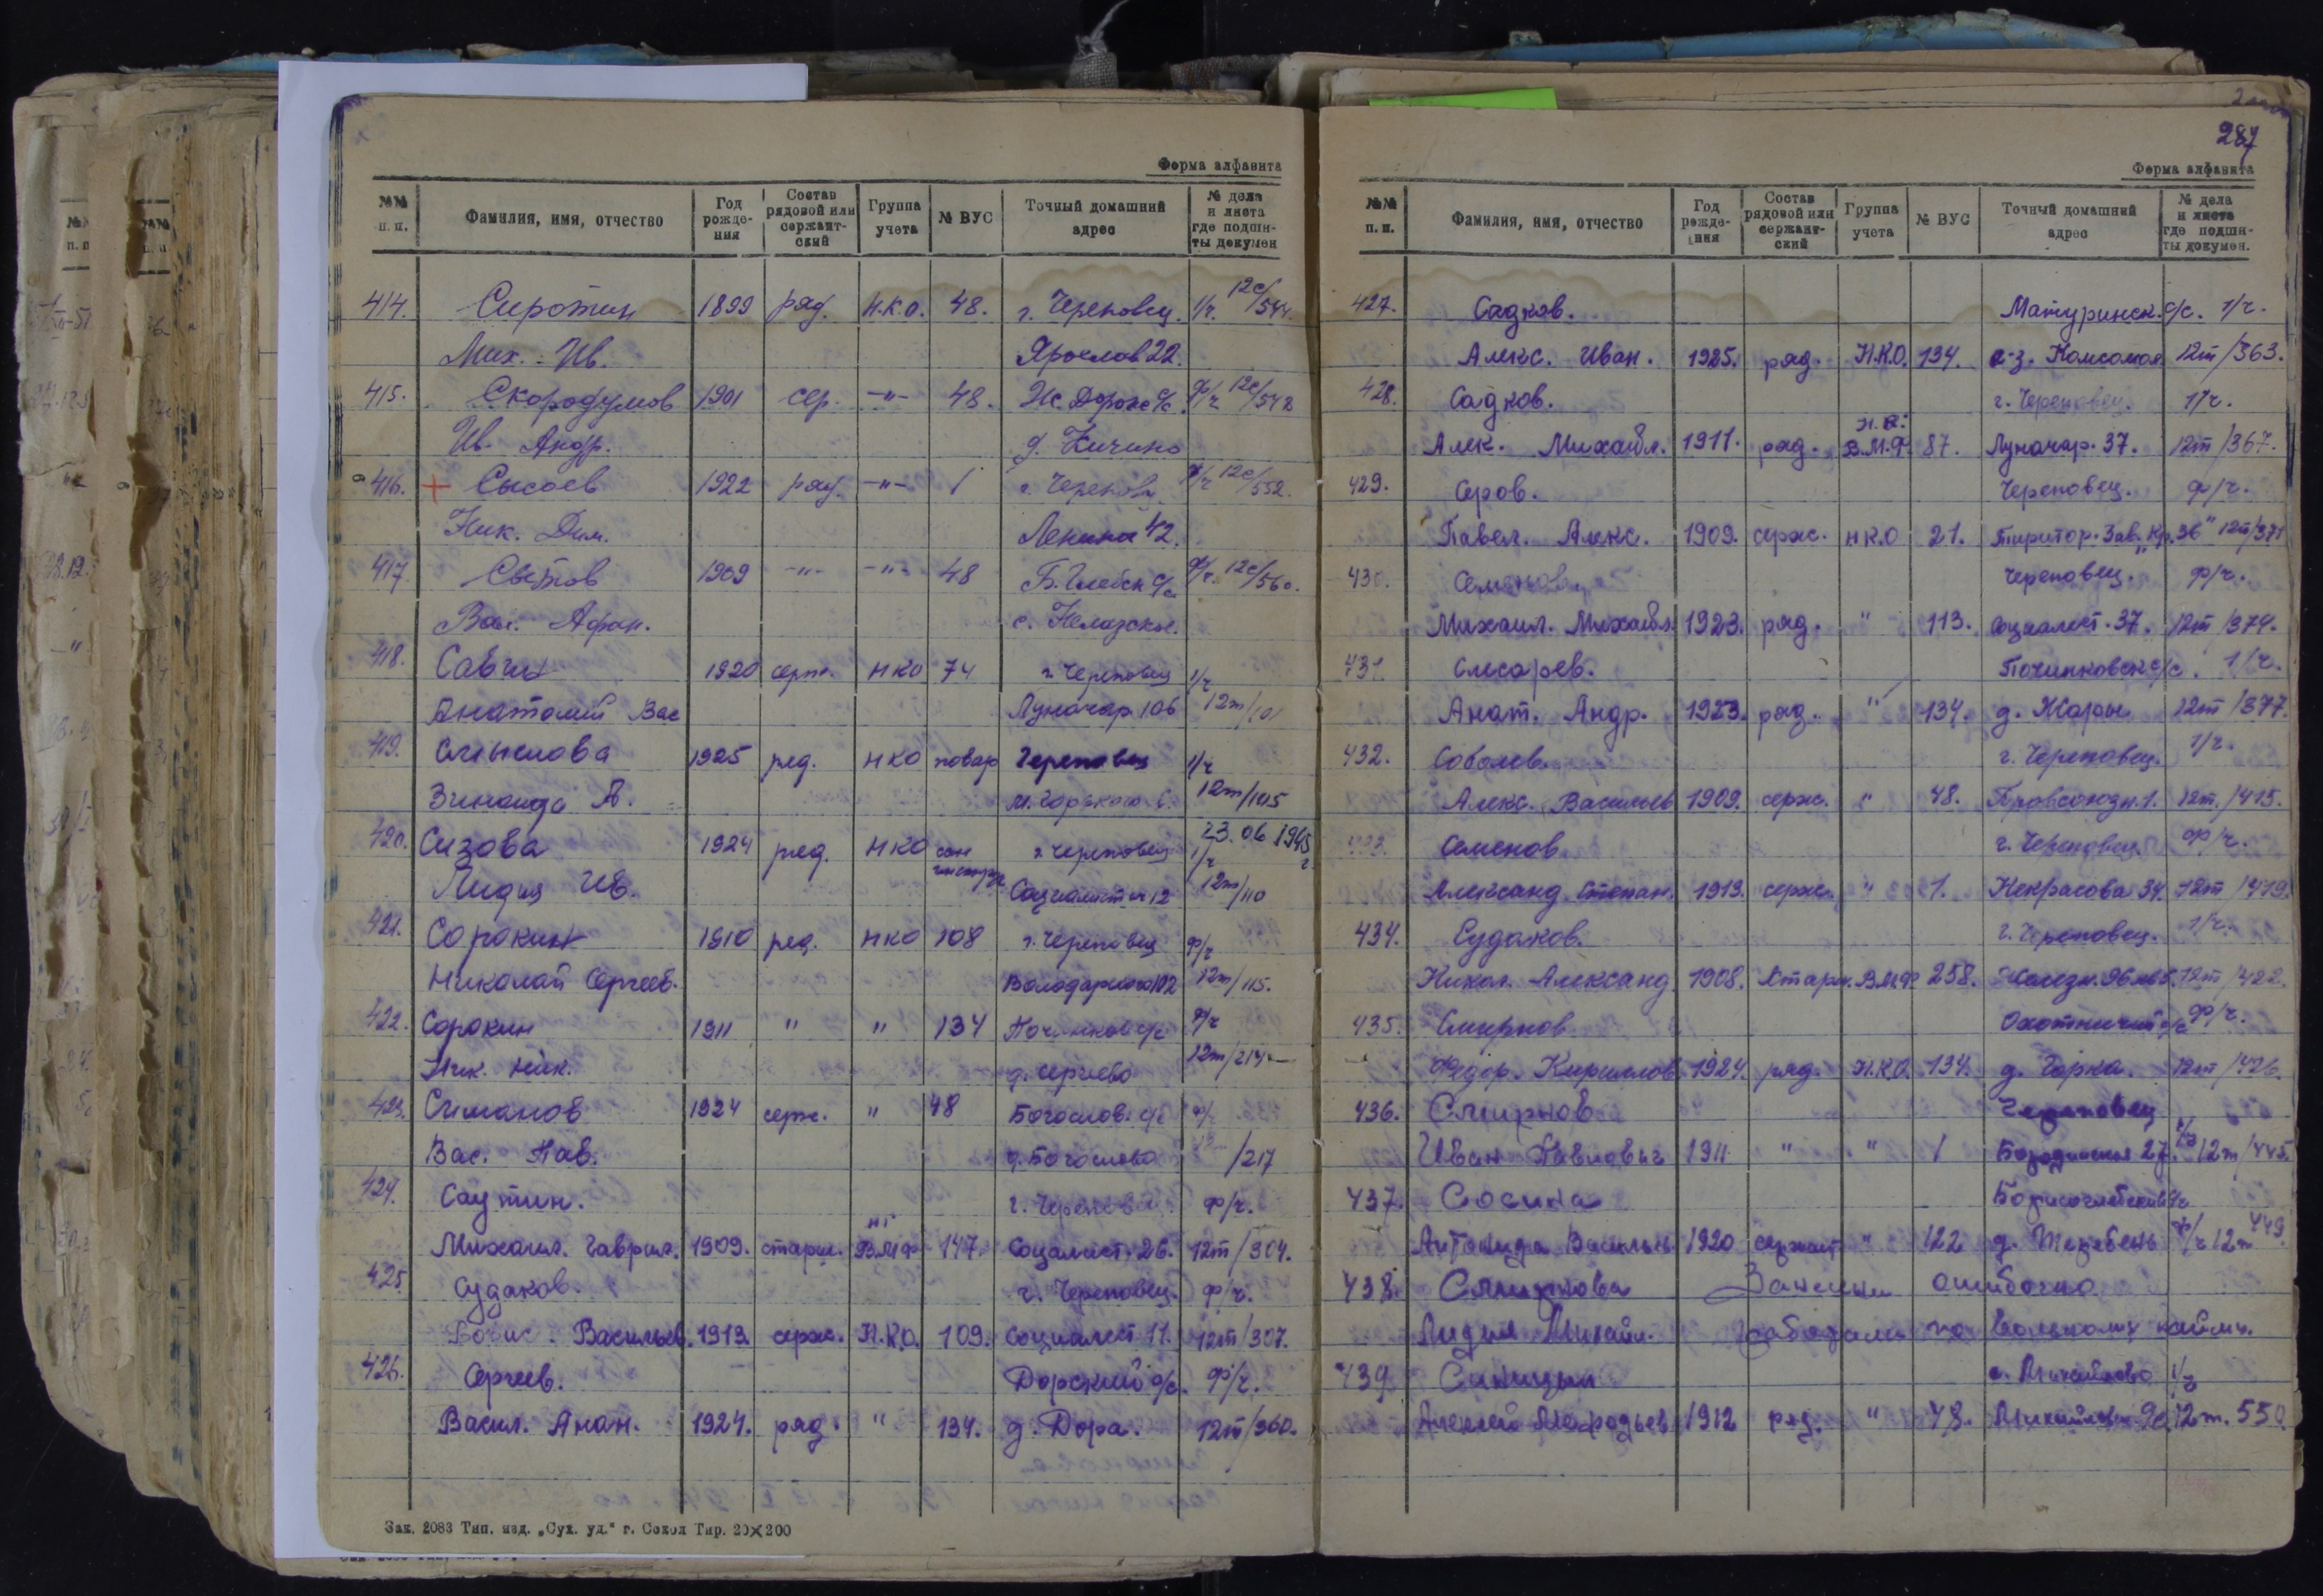 Форма алфавита
№№ п. п. Фамилия, имя, отчество Год рожде-ния Состав рядовой или сержант-ский Группа учета № ВУС Точный домашний адрес № дела и листа где подши-ты докумен
414. Сиротин 1899 ряд. Н.К.О. 48. г. Череповец. 1/ч. 12с/544.
Мих. Ив. Ярослов 22.
415. Скородумов 1901 сер. -"- 48. Ж. Дорож с/с. ф/ч 12с/548
Ив. Андр. д. Кичино
416. + Сысоев 1922 ряд. -"- 1 г. Черепов. ф/ч 12с/552.
Ник. Дим. Ленина 42.
417 Светов 1909 -"- -"- 48 Б. Глебск с/с ф/ч. 12с/560.
Вас. Афан. с. Нелазское.
418. Савин 1920 серж. НКО 74 г. Череповец 1/ч
Анатолий Вас Луначар 106 12т/101
419. Смыслова 1925 ряд. НКО повар Череповец 1/ч
Зинаида А. М. Горького 12т/105
23.06 1945 г
420. Сизова 1924 ряд. НКО сан инстр г. Череповец 1/ч
Лидия Ив. Социалист 12 12т/110
421. Сорокин 1910 ряд. НКО 108 г. Череповец ф/ч
Николай Сергеев. Володарского 102 12т/115.
422. Сорокин 1911 " " 134 Починков с/с ф/ч
Ник. Ник. д. Сергеево 12т/214
423. Симанов 1924 серж. " 48 Богослов. с/с ф/ч
Вас. Пав. д. Богослово /217
424. Саутин. г. Черепов ф/ч.
Михаил. Гаврил. 1909. старш. В.М.Ф. 147. Социалист. 26. 12т/304.
425 Судаков. г. Череповец. ф/ч.
Борис. Васильев. 1913. серж. Н.К.О. 109. Социалист 11. 12т/307.
426. Сергеев. Дорский с/с. ф/ч.
Васил. Анан. 1924. ряд. " 134. д. Дора. 12т/360.
Зак. 2083 Тип. изд. „Сух. уд." г. Сокол Тир. 20×200
287
Форма алфавита
№№ п. п. Фамилия, имя, отчество Год рожде-ния Состав рядовой или сержант-ский Группа учета № ВУС Точный домашний адрес № дела и листа где подши-ты докумен.
427. Садков. Матуринск. с/с. 1/ч.
Алекс. Иван. 1925. ряд. Н.К.О. 134. с-з. Комсомол 12т/363.
428. Садков. г. Череповец. 1/ч.
Алек. Михайл. 1911. ряд. В.М.Ф. 87. Луначар. 37. 12т/367.
429. Серов. Череповец. ф/ч.
Павел. Алекс. 1909. серж. НКО 21. Территор. Зав. "Кр. Зв" 12т/371
430. Семенов. Череповец. ф/ч.
Михаил. Михайл. 1923. ряд. " 113. Социалист. 37. 12т/374.
431. Слесарев. Починковск с/с. 1/ч.
Анат. Андр. 1923. ряд. " 134. д. Жары 12т/377.
432. Соболев. г. Череповец. 1/ч.
Алекс. Васильев 1909. серж. " 48. Профсоюзн. 1. 12т./415.
433. Семенов г. Череповец. ф/ч.
Александ. Степан. 1913. серж. " 1. Некрасова 34. 12т/419.
434. Судаков. г. Череповец. 1/ч.
Никол. Александ. 1908. старш. В.М.Ф. 258. 12т/422.
435. Смирнов Охотничий с/с ф/ч.
Федор. Кириллов. 1924. ряд. Н.К.О. 134. д. Горка. 12т/426.
436. Смирнов Череповец
Иван Павлович 1911 " " 1 Бородинская 27. 12т/445.
437. Сосина Борисоглебский с/с
Антонида Васильн. 1920 сержант " 122 д. Теребень ф/ч 12т 449
438. Смирнова Занесены ошибочно
Лидия Михайл. работали по вольному найму.
439 Синицын с. Михайлово 1/ч
Алексей Мефодьев 1912 ряд. " 48. 12т. 550